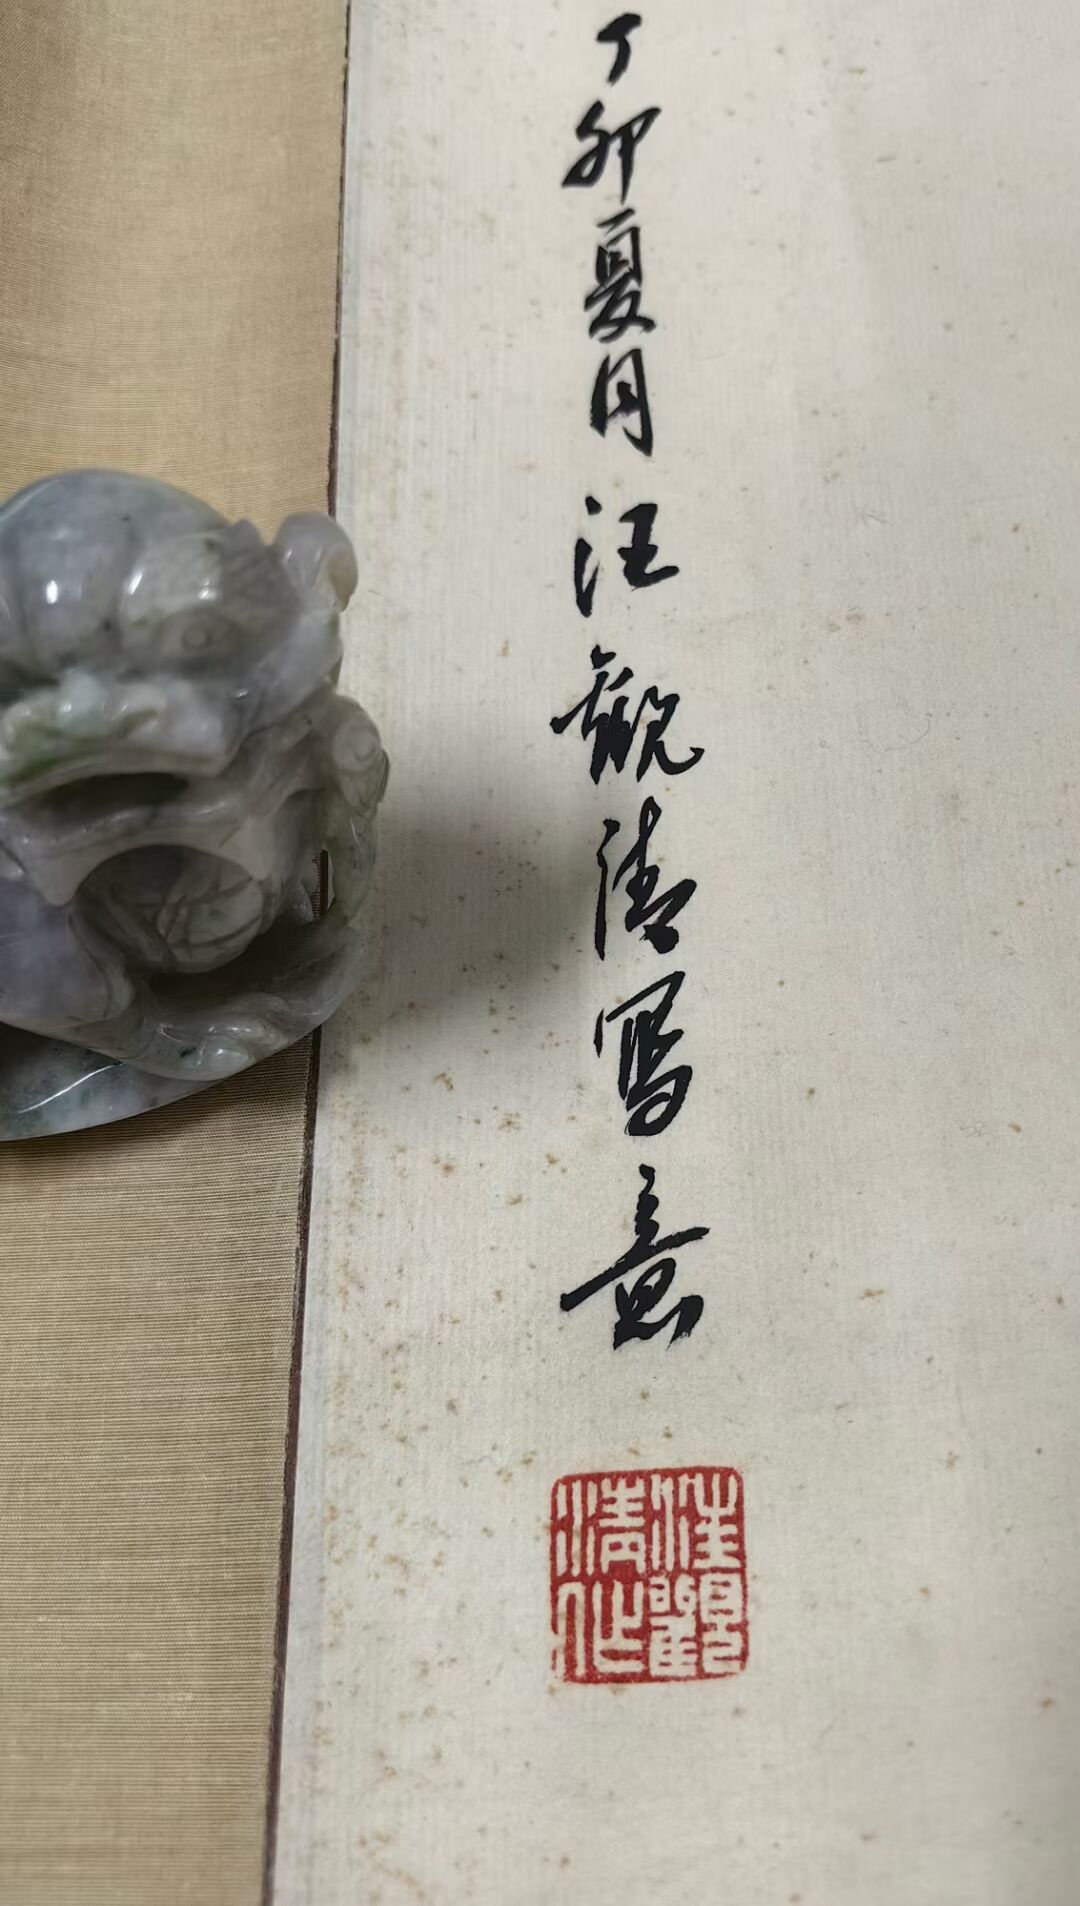 丁卯夏月汪觀清寫意
汪觀
清作